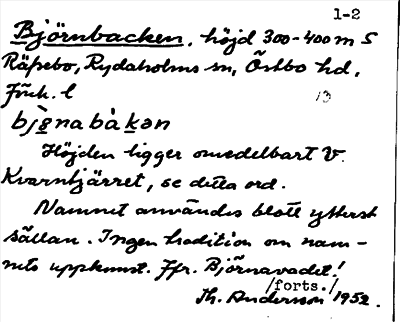 1-2
Björnbacken, höjd 300-400 m S
Räpsbo, Rydaholms sn, Östbo hd,
Jönk. l
13
bjɵ̀nabàkən
Höjden ligger omedelbart V.
Kvarntjärret, se detta ord.
Namnet användes blott ytterst
sällan. Ingen tradition om nam-
nets uppkomst. Jfr. Björnavadet!
/forts./
Th. Anderson 1952.